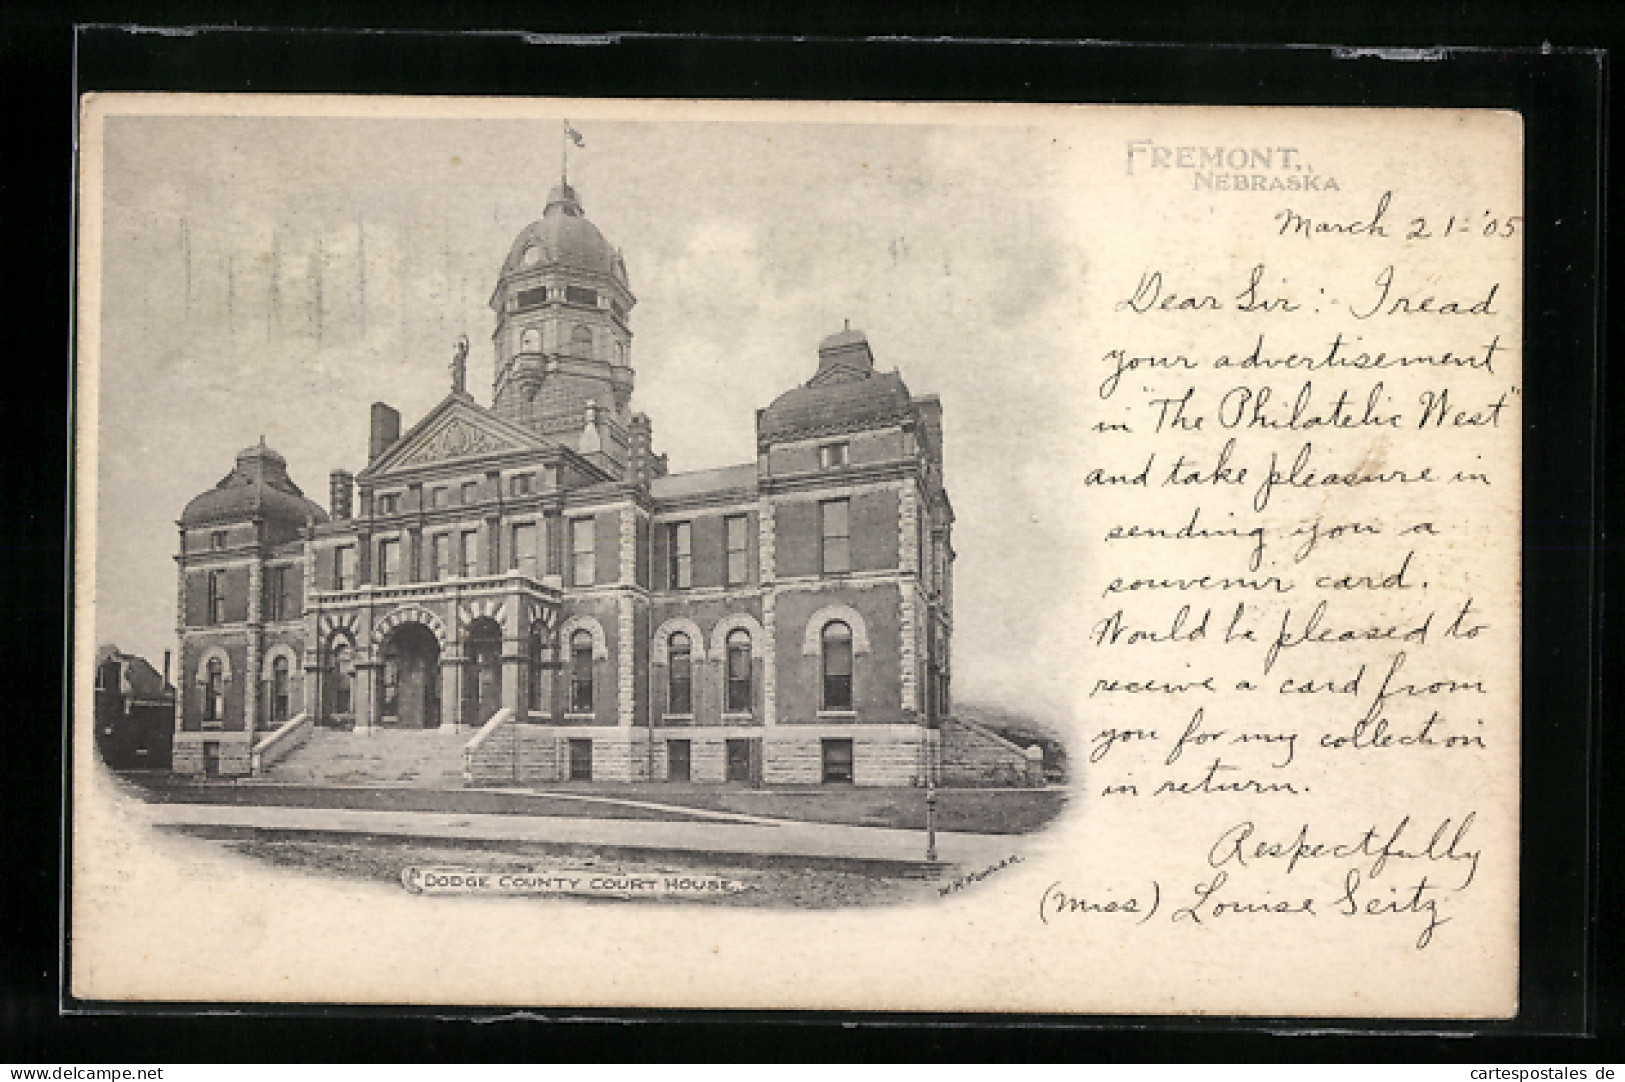 FREMONT,
NEBRASKA
March 21-'05
Dear Sir:- I read
your advertisement
in "The Philatelic West"
and take pleasure in
sending you a
souvenir card.
Would be pleased to
receive a card from
you for my collection
in return.
Respectfully
(Miss) Louise Seitz
DODGE COUNTY COURT HOUSE.
cartespostales-delcampe.net (c)
cartespostales de